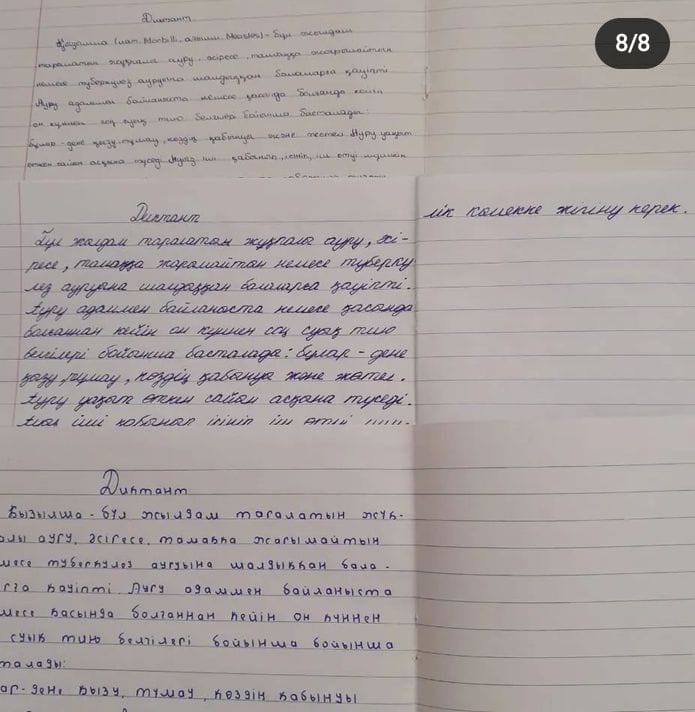 8/8
Диктант
Қызылша (лат. Morbilli, ағылш. Measles) - бұл жылдам
таралатын жұқпалы ауру, әсіресе, тамаққа жарымайтын
немесе туберкулез ауруына шалдыққан балаларға қауіпті
Ауру адаммен байланыста немесе қасында болғанда кейін
он күннен соң суық тию белгілері бойынша басталады:
бұлар - дене қызу, тұмау, көздің қабынуы және жөтел Ауру уақыт
өткен сайын асқына түседі
Диктант
Бұл жылдам таралатын жұқпалы ауру, әсі-
ресе, тамаққа жарамайтын немесе туберку
лез ауруына шалдыққан балаларға қауіпті.
Ауру адаммен байланоста немесе қасында
болғаннан кейін он күннен соң суық тию
белгілері бойынша басталада: бұлар - дене
қызу, тұмау, көздің қабынуа және жөтел.
Ауру уақыт өткен сайын асқына түседі.
лік көмекке жүгіну керек.
Диктант
Қызылша - бұл жылдам таралатын жұқ-
алы ауру, әсіресе, тамаққа жарымайтын
месе туберкулез ауруына шалдыққан бала-
рға қауіпті Ауру адаммен байланыста
месе қасында болғаннан кейін он күннен
суық тию белгілері бойынша бойынша
талады:
ар - дене қызу, тұмау, көздің қабынуы